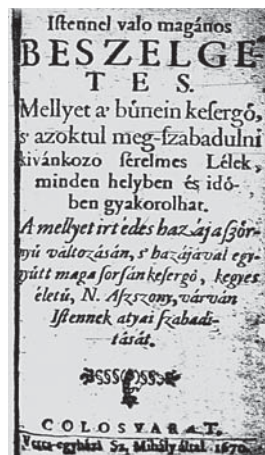 Iſtennel valo magános
BESZELGE-
TES.
Mellyet a' bűnein keſergő,
s' azoktul meg-ſzabadulni
kivánkozo ſérelmes Lélek,
minden helyben és idő-
ben gyakorolhat.
A mellyet irt édes hazája ſzör-
nyű változásán, s' hazájával egy-
gyütt maga ſorſán keſergő, kegyes
életű, N. Aſzſzony, várván
Iſtennek atyai ſzabadi-
táſát.
COLOSVARAT,
egyházi Sz. Mihály által. 1670.